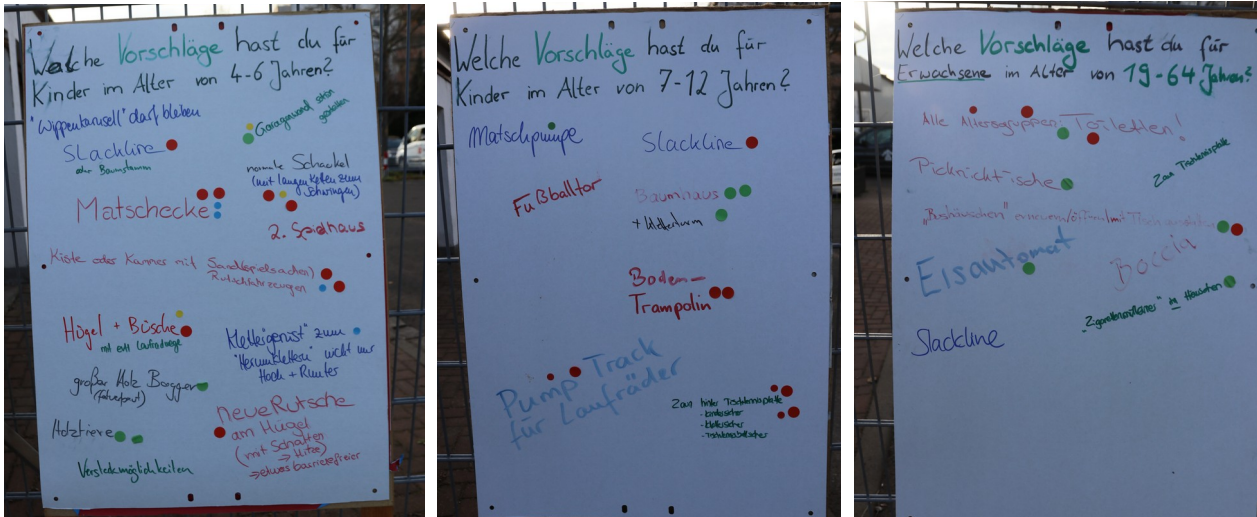 Welche Vorschläge hast du für
Kinder im Alter von 4-6 Jahren?
"Wippenkarusell" darf bleiben
Garagenwand schön
gestalten
Slackline
oder Baumstamm
normale Schaukel
(mit langen Ketten zum
Schwingen)
Matschecke
2. Spielhaus
Kiste oder Kammer mit Sandspielsachen)
Rutschfahrzeugen
Hügel + Büsche
mit evtl Laufradwege
Klettergerüst" zum
"Herumklettern" nicht nur
Hoch + Runter
großer Holz Bagger
Holztiere
neue Rutsche
am Hügel
(mit Schatten
→ Hitze)
⇒ etwas barrierefreier
Versteckmöglichkeiten
Welche Vorschläge hast du für
Kinder im Alter von 7-12 Jahren?
Matschpumpe
Slackline
Fußballtor
Baumhaus
+ Kletterturm
Boden-
Trampolin
Pump Track
für Laufräder
Zaun hinter Tischtennisplatte
Welche Vorschläge hast du für
Erwachsene im Alter von 19-64 Jahren?
Alle Altersgruppen Toiletten!
Zaun Tischtennisplatte
Picknicktische
Eisautomat
Boccia
Slackline